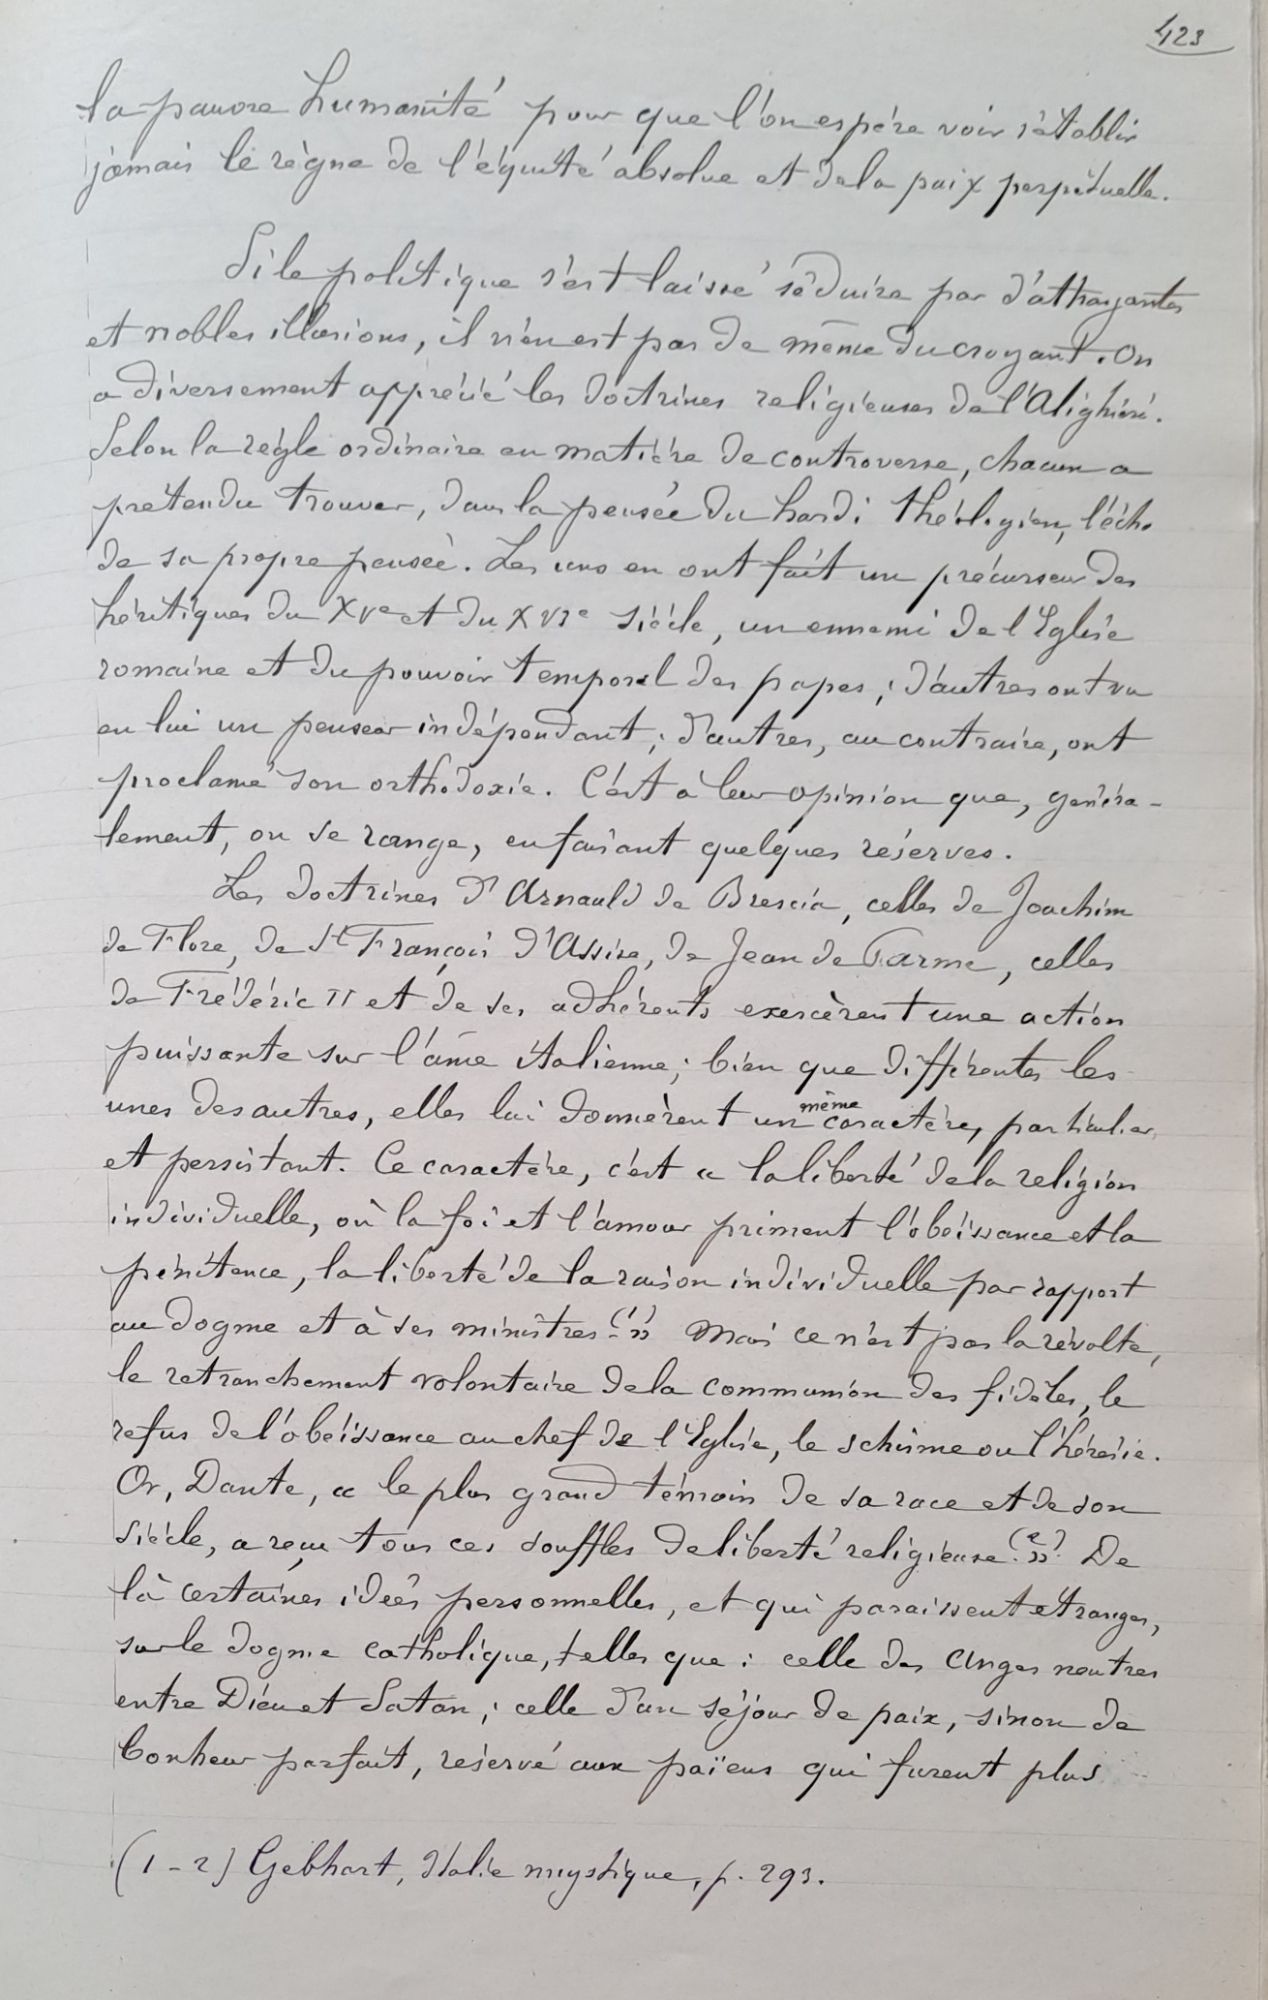 423
la pauvre humanité pour que l'on espère voir s'établir
jamais le règne de l'équité absolue et de la paix perpétuelle.
Si le politique s'est laissé séduire par d'attrayantes
et nobles illusions, il n'en est pas de même du croyant. On
a diversement apprécié les doctrines religieuses de l'Alighieri.
Selon la règle ordinaire en matière de controverse, chacun a
prétendu trouver, dans la pensée du hardi théologien, l'écho
de sa propre pensée. Les uns en ont fait un précurseur des
hérétiques du XVe et du XVIe siècle, un ennemi de l'Eglise
romaine et du pouvoir temporel des papes ; d'autres ont vu
en lui un penseur indépendant ; d'autres, au contraire, ont
proclamé son orthodoxie. C'est à leur opinion que, généra-
lement, on se range, en faisant quelques réserves.
Les doctrines d'Arnauld de Brescia, celles de Joachim
de Flore, de St François d'Assise, de Jean de Parme, celles
de Frédéric II et de ses adhérents exercèrent une action
puissante sur l'âme italienne ; bien que différentes les
unes des autres, elles lui donnèrent un même caractère, particulier
et persistant. Ce caractère, c'est « la liberté de la religion
individuelle, où la foi et l'amour priment l'obéissance et la
pénitence, la liberté de la raison individuelle par rapport
au dogme et à ses ministres (1) ». Mais ce n'est pas la révolte,
le retranchement volontaire de la communion des fidèles, le
refus de l'obéissance au chef de l'Eglise, le schisme ou l'hérésie.
Or, Dante, « le plus grand témoin de sa race et de son
siècle, a reçu tous ces souffles de liberté religieuse (2) ». De
là certaines idées personnelles, et qui paraissent étranges,
sur le dogme catholique, telles que : celle des Anges neutres
entre Dieu et Satan ; celle d'un séjour de paix, sinon de
bonheur parfait, réservé aux païens qui furent plus
(1-2) Gebhart, Italie mystique, p. 293.